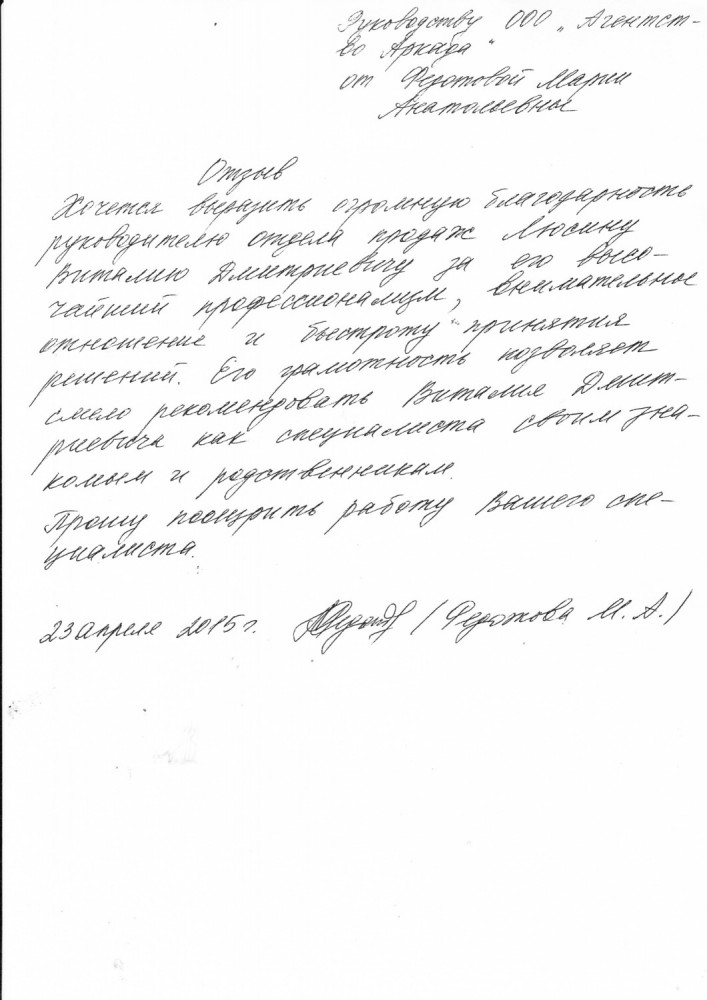 Руководству ООО „Агентст-
во Аркада"
от Федотовой Марии
Анатольевны
Отзыв
Хочется выразить огромную благодарность
руководителю отдела продаж Люсину
Виталию Дмитриевичу за его высо-
чайший профессионализм, внимательное
отношение и быстроту принятия
решений. Его грамотность позволяет
смело рекомендовать Виталия Дмит-
риевича как специалиста своим зна-
комым и родственникам.
Прошу поощрить работу Вашего спе-
циалиста.
23 апреля 2015г. / Федотова М. А. /